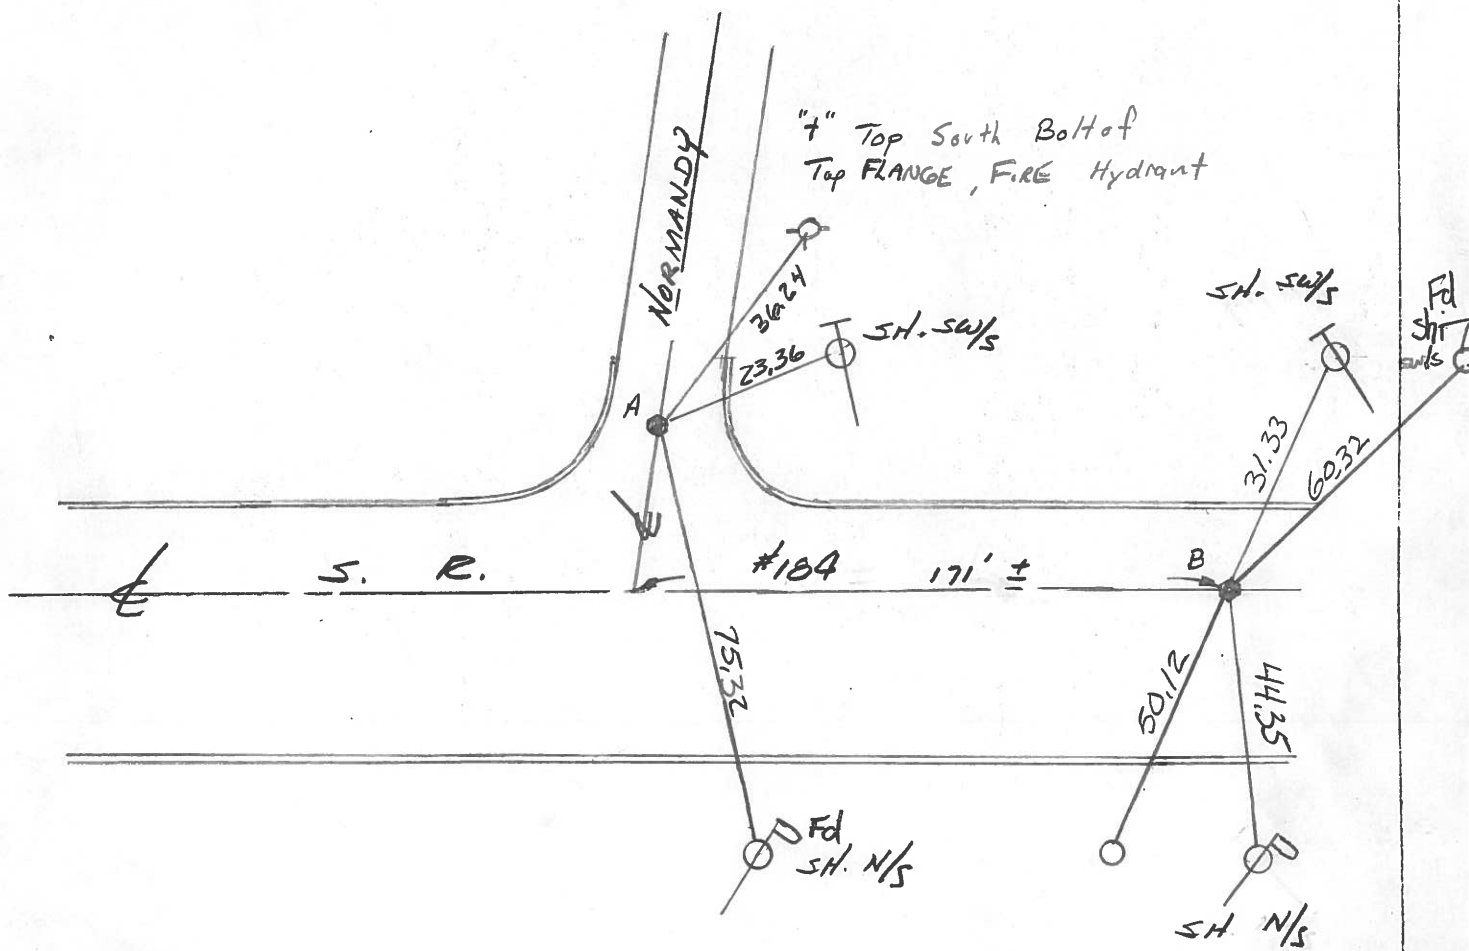 "+" Top South Bolt of
Top FLANGE, FIRE Hydrant
NORMANDY
36.24
SH. SW/S
23.36
A
SH. SW/S
Fd
SH
SW/S
31.33
60.32
℄ S. R. #184 171' ±
B
75.32
50.12
44.35
Fd
SH. N/S
SH N/S